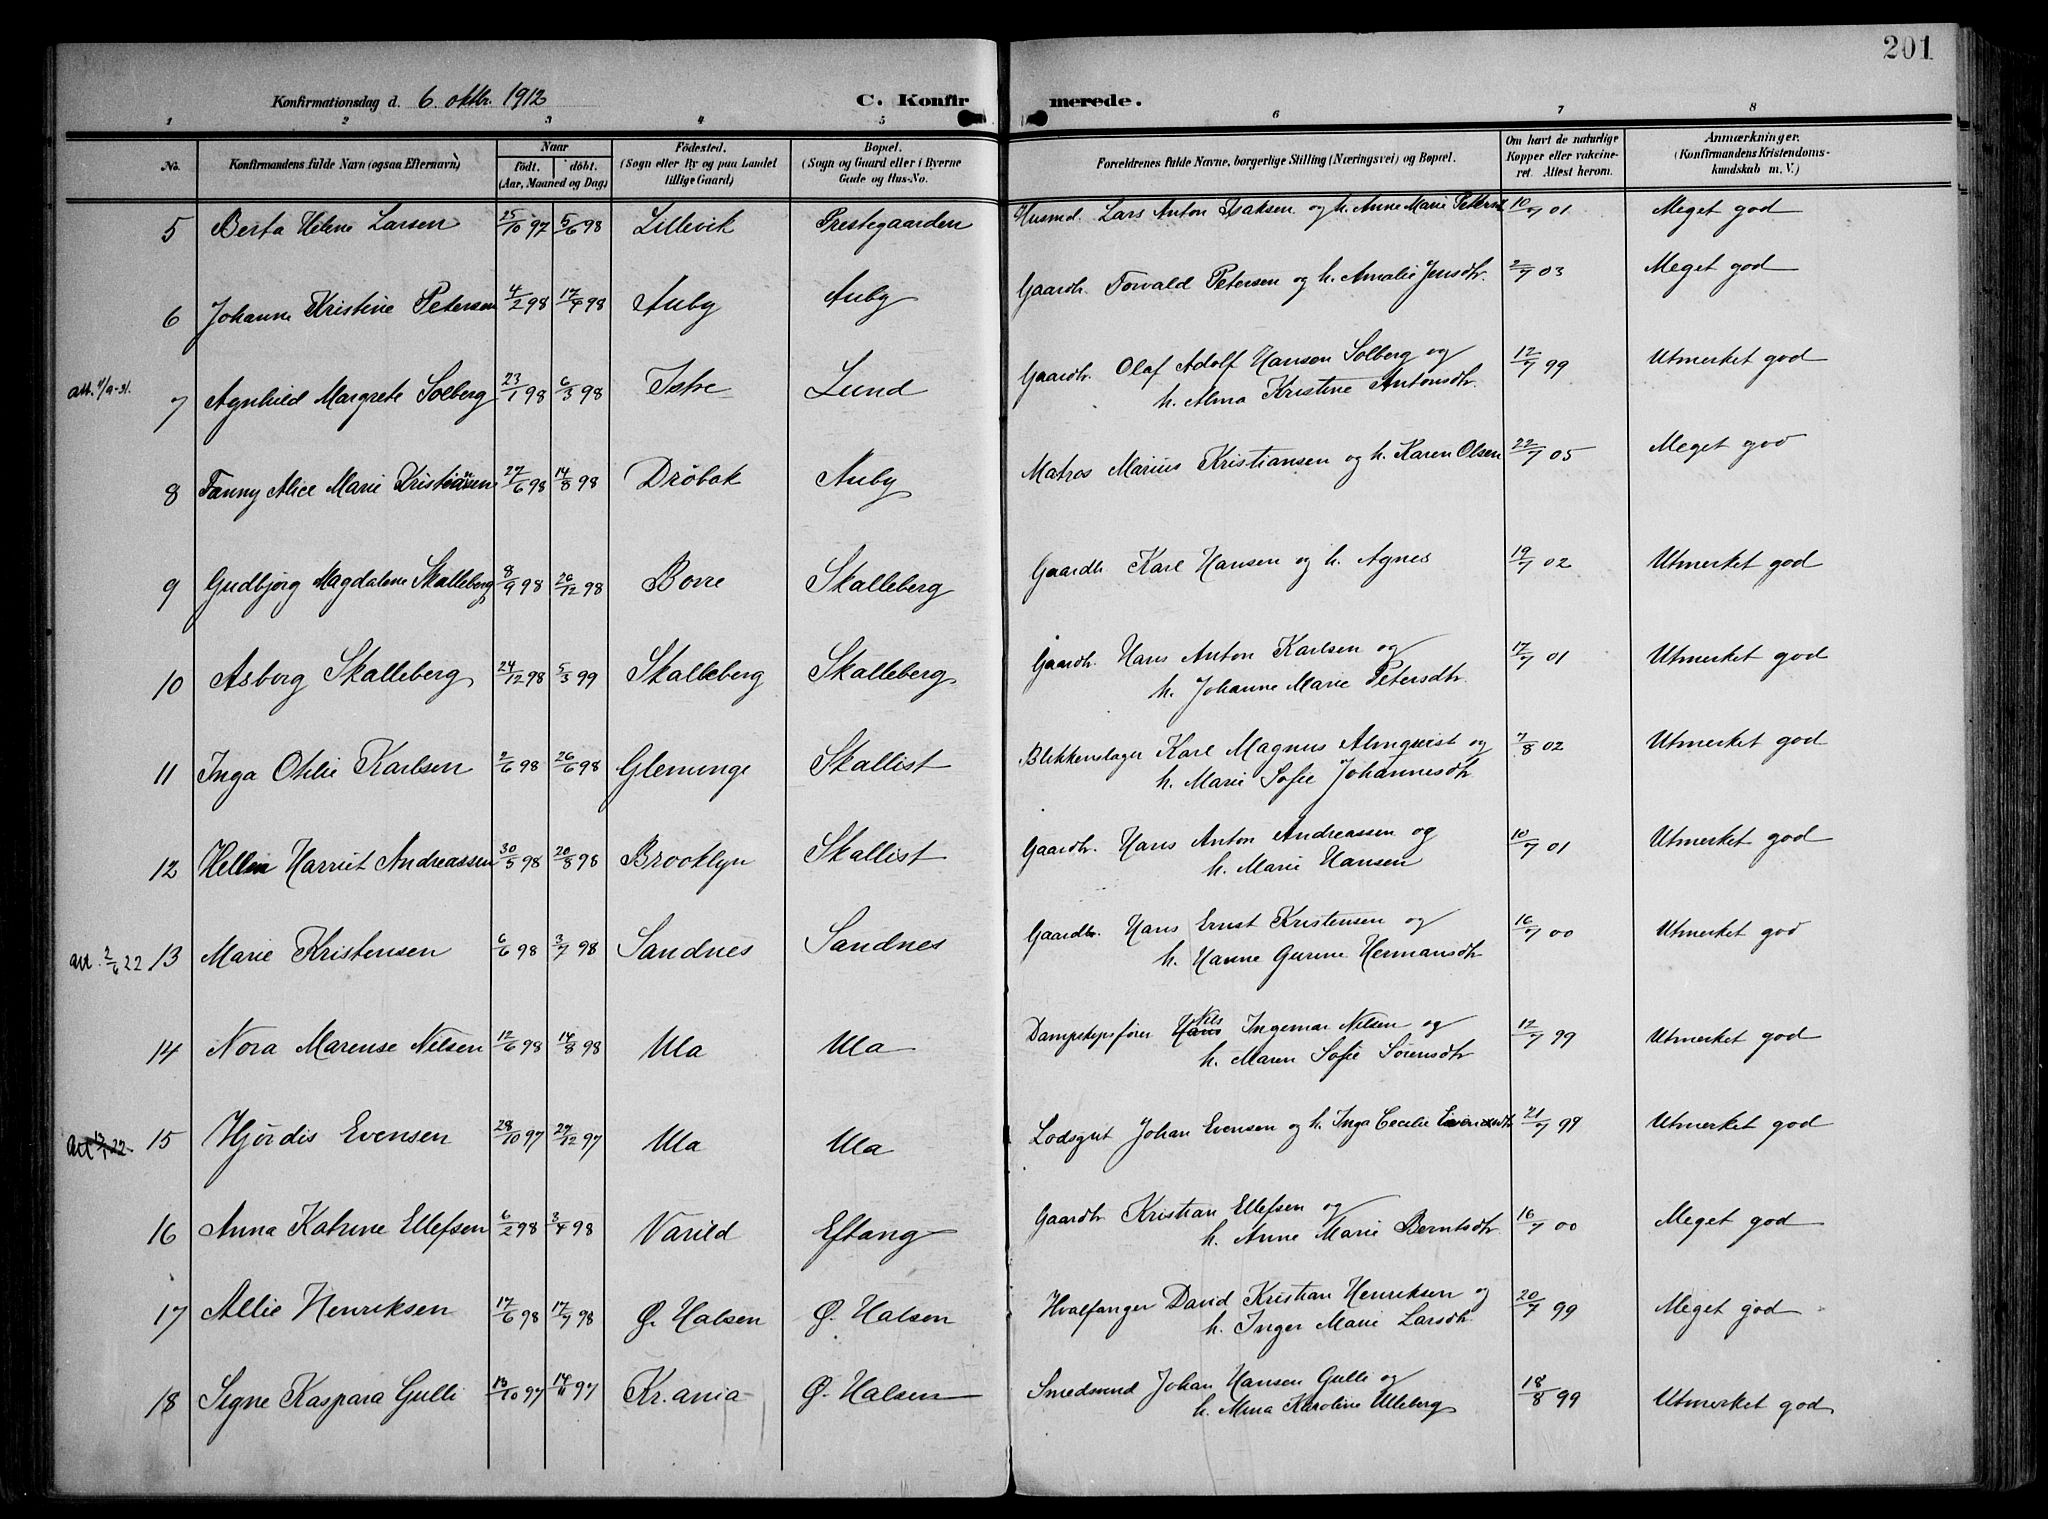 201
Konfirmationsdag d. 6. oktbr. 1912
C. Konfirmerede.
1 2 3 4 5 6 7 8
No. Konfirmandens fulde Navn (ogsaa Efternavn) Naar født. døbt. (Aar, Maaned og Dag) Fødested. (Sogn eller By og paa Landet tillige Gaard) Bopæl. (Sogn og Gaard eller i Byerne Gade og Hus-No. Forældrenes fulde Navne, borgerlige Stilling (Næringsvei) og Bopæl. Om havt de naturlige Kopper eller vakcineret. Attest herom. Anmærkninger. (Konfirmandens Kristendomskundskab m. V.)
5 Berta Helene Larsen 25/10 97 5/6 98 Lillevik Prestegaarden Husmd. Lars Anton Isaksen og h. Anne Marie Petersd 10/7 01 Meget god
6 Johanne Kristine Petersen 4/2 98 17/4 98 Auby Auby Gaardbr. Torvald Petersen og h. Amalie Jensdtr. 2/7 03 Meget god
att. 11/9-31. 7 Agnhild Margrete Solberg 23/1 98 6/3 98 Istre Lund Gaardbr. Olaf Adolf Hansen Solberg og 12/7 99 Utmerket god
h. Alma Kristine Antonsdtr.
8 Fanny Alice Marie Kristiansen 27/6 98 14/8 98 Drøbak Auby Matros Marius Kristiansen og h. Karen Olsen 22/7 05 Meget god
9 Gudbjørg Magdalene Skalleberg 8/9 98 26/12 98 Borre Skalleberg Gaardbr. Karl Hansen og h. Agnes 19/7 02 Utmerket god
10 Asborg Skalleberg 24/12 98 5/3 99 Skalleberg Skalleberg Gaardbr. Hans Anton Karlsen og 17/7 01 Utmerket god
h. Johanne Marie Petersdtr.
11 Inga Otilie Karlsen 2/6 98 26/6 98 Glemminge Skallist Blikkenslager Karl Magnus Almqvist og 7/8 02 Utmerket god
h. Marie Sofie Johannesdtr
12 Hellen Harriet Andreassen 30/5 98 20/8 98 Brooklyn Skallist Gaardbr. Hans Anton Andreassen og 10/7 01 Utmerket god
h. Marie Hansen
att. 2/6 22 13 Marie Kristensen 6/6 98 3/7 98 Sandnes Sandnes Gaardbr. Hans Ernst Kristensen og 16/7 00 Utmerket god
h. Hanne Gurine Hermansdtr
14 Nora Marense Nilsen 12/6 98 14/8 98 Ula Ula Dampskpsfører Hans Nils Ingemar Nilsen og 12/7 99 Utmerket god
h. Maren Sofie Sørensdtr
15 Hjørdis Evensen 28/10 97 27/12 97 Ula Ula Lodsgut Johan Evensen og h. Inga Cecilie 21/7 99 Utmerket god
16 Anna Katrine Ellefsen 6/2 98 3/4 98 Varild Eftang Gaardbr Kristian Ellefsen og 16/7 00 Meget god
h. Anne Marie Berntsdtr
17 Allie Henriksen 17/6 98 17/7 98 Ø. Halsen Ø. Halsen Hvalfanger David Kristian Henriksen og 20/7 99 Meget god
h. Inger Marie Larsdtr.
18 Signe Kaspara Gulli 13/10 97 14/11 97 Kr.ania Ø. Halsen Smedsvend Johan Hansen Gulli og 18/8 99 Utmerket god
h. Mina Karoline Ulleberg